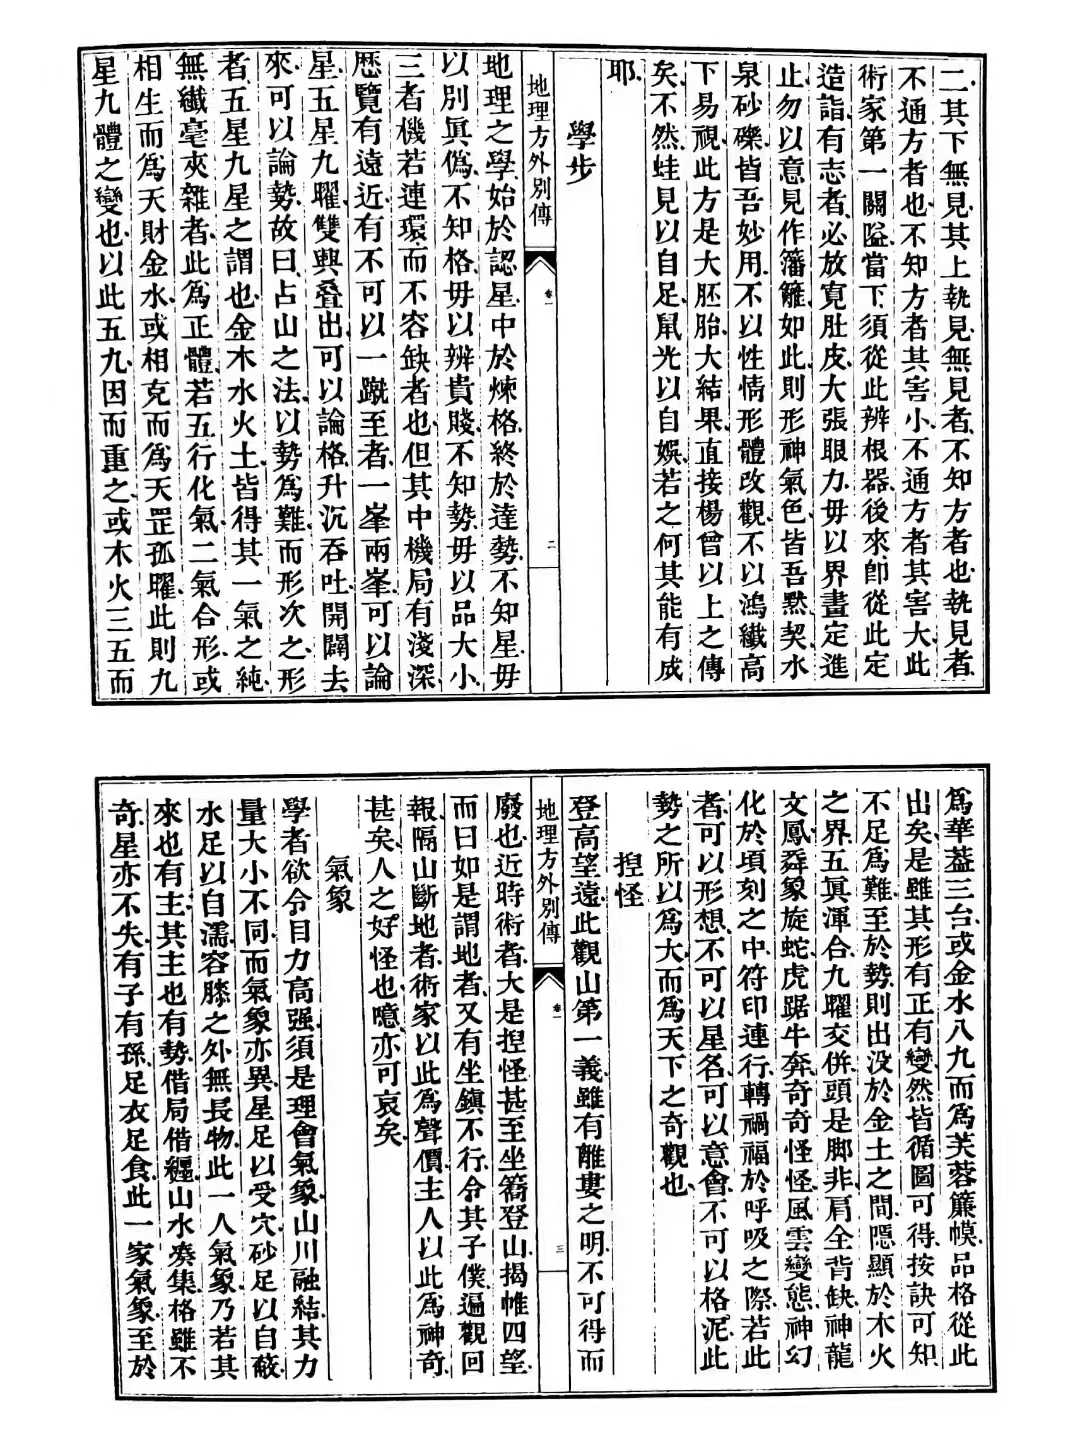 二其下無見其上執見無見者不知方者也執見者
不通方者也不知方者其害小不通方者其害大此
術家第一關隘當下須從此辨根器後來卽從此定
造詣有志者必放寬肚皮大張眼力毋以界畫定進
止勿以意見作籓籬如此則形神氣色皆吾黙契水
泉砂礫皆吾妙用不以性情形體改觀不以鴻纎高
下易視此方是大胚胎大結果直接楊曾以上之傳
矣不然蛙見以自足鼠光以自娛若之何其能有成
耶
學步
地理方外別傳 卷一 二
地理之學始於認星中於煉格終於達勢不知星毋
以別眞僞不知格毋以辨貴賤不知勢毋以品大小
三者機若連環而不容缺者也但其中機局有淺深
歷覽有遠近有不可以一蹴至者一峯兩峯可以論
星五星九曜雙輿叠出可以論格升沉吞吐開闢去
來可以論勢故曰占山之法以勢爲難而形次之形
者五星九星之謂也金木水火土皆得其一氣之純
無纎毫夾雜者此爲正體若五行化氣二氣合形或
相生而爲天財金水或相克而爲天罡孤曜此則九
星九體之變也以此五九因而重之或木火三五而
爲華葢三台或金水八九而爲芙蓉簾幙品格從此
出矣是雖其形有正有變然皆循圖可得按訣可知
不足爲難至於勢則出沒於金土之間隱顯於木火
之界五眞渾合九曜交併頭是脚非肩全背缺神龍
文鳳舜象旋蛇虎踞牛奔奇奇怪怪風雲變態神幻
化於頃刻之中符印連行轉禍福於呼吸之際若此
者可以形想不可以星名可以意會不可以格泥此
勢之所以爲大而爲天下之奇觀也
揑怪
登高望遠此觀山第一義雖有離婁之明不可得而
地理方外別傳 卷一 三
廢也近時術者大是揑怪甚至坐篛登山揭帷四望
而曰如是謂地者又有坐鎭不行令其子僕遍觀回
報隔山斷地者術家以此爲聲價主人以此爲神奇
甚矣人之好怪也噫亦可哀矣
氣象
學者欲令目力高强須是理會氣象山川融結其力
量大小不同而氣象亦異星足以受穴砂足以自蔽
水足以自濡容膝之外無長物此一人氣象乃若其
來也有主其主也有勢借局借纒山水湊集格雖不
奇星亦不失有子有孫足衣足食此一家氣象至於